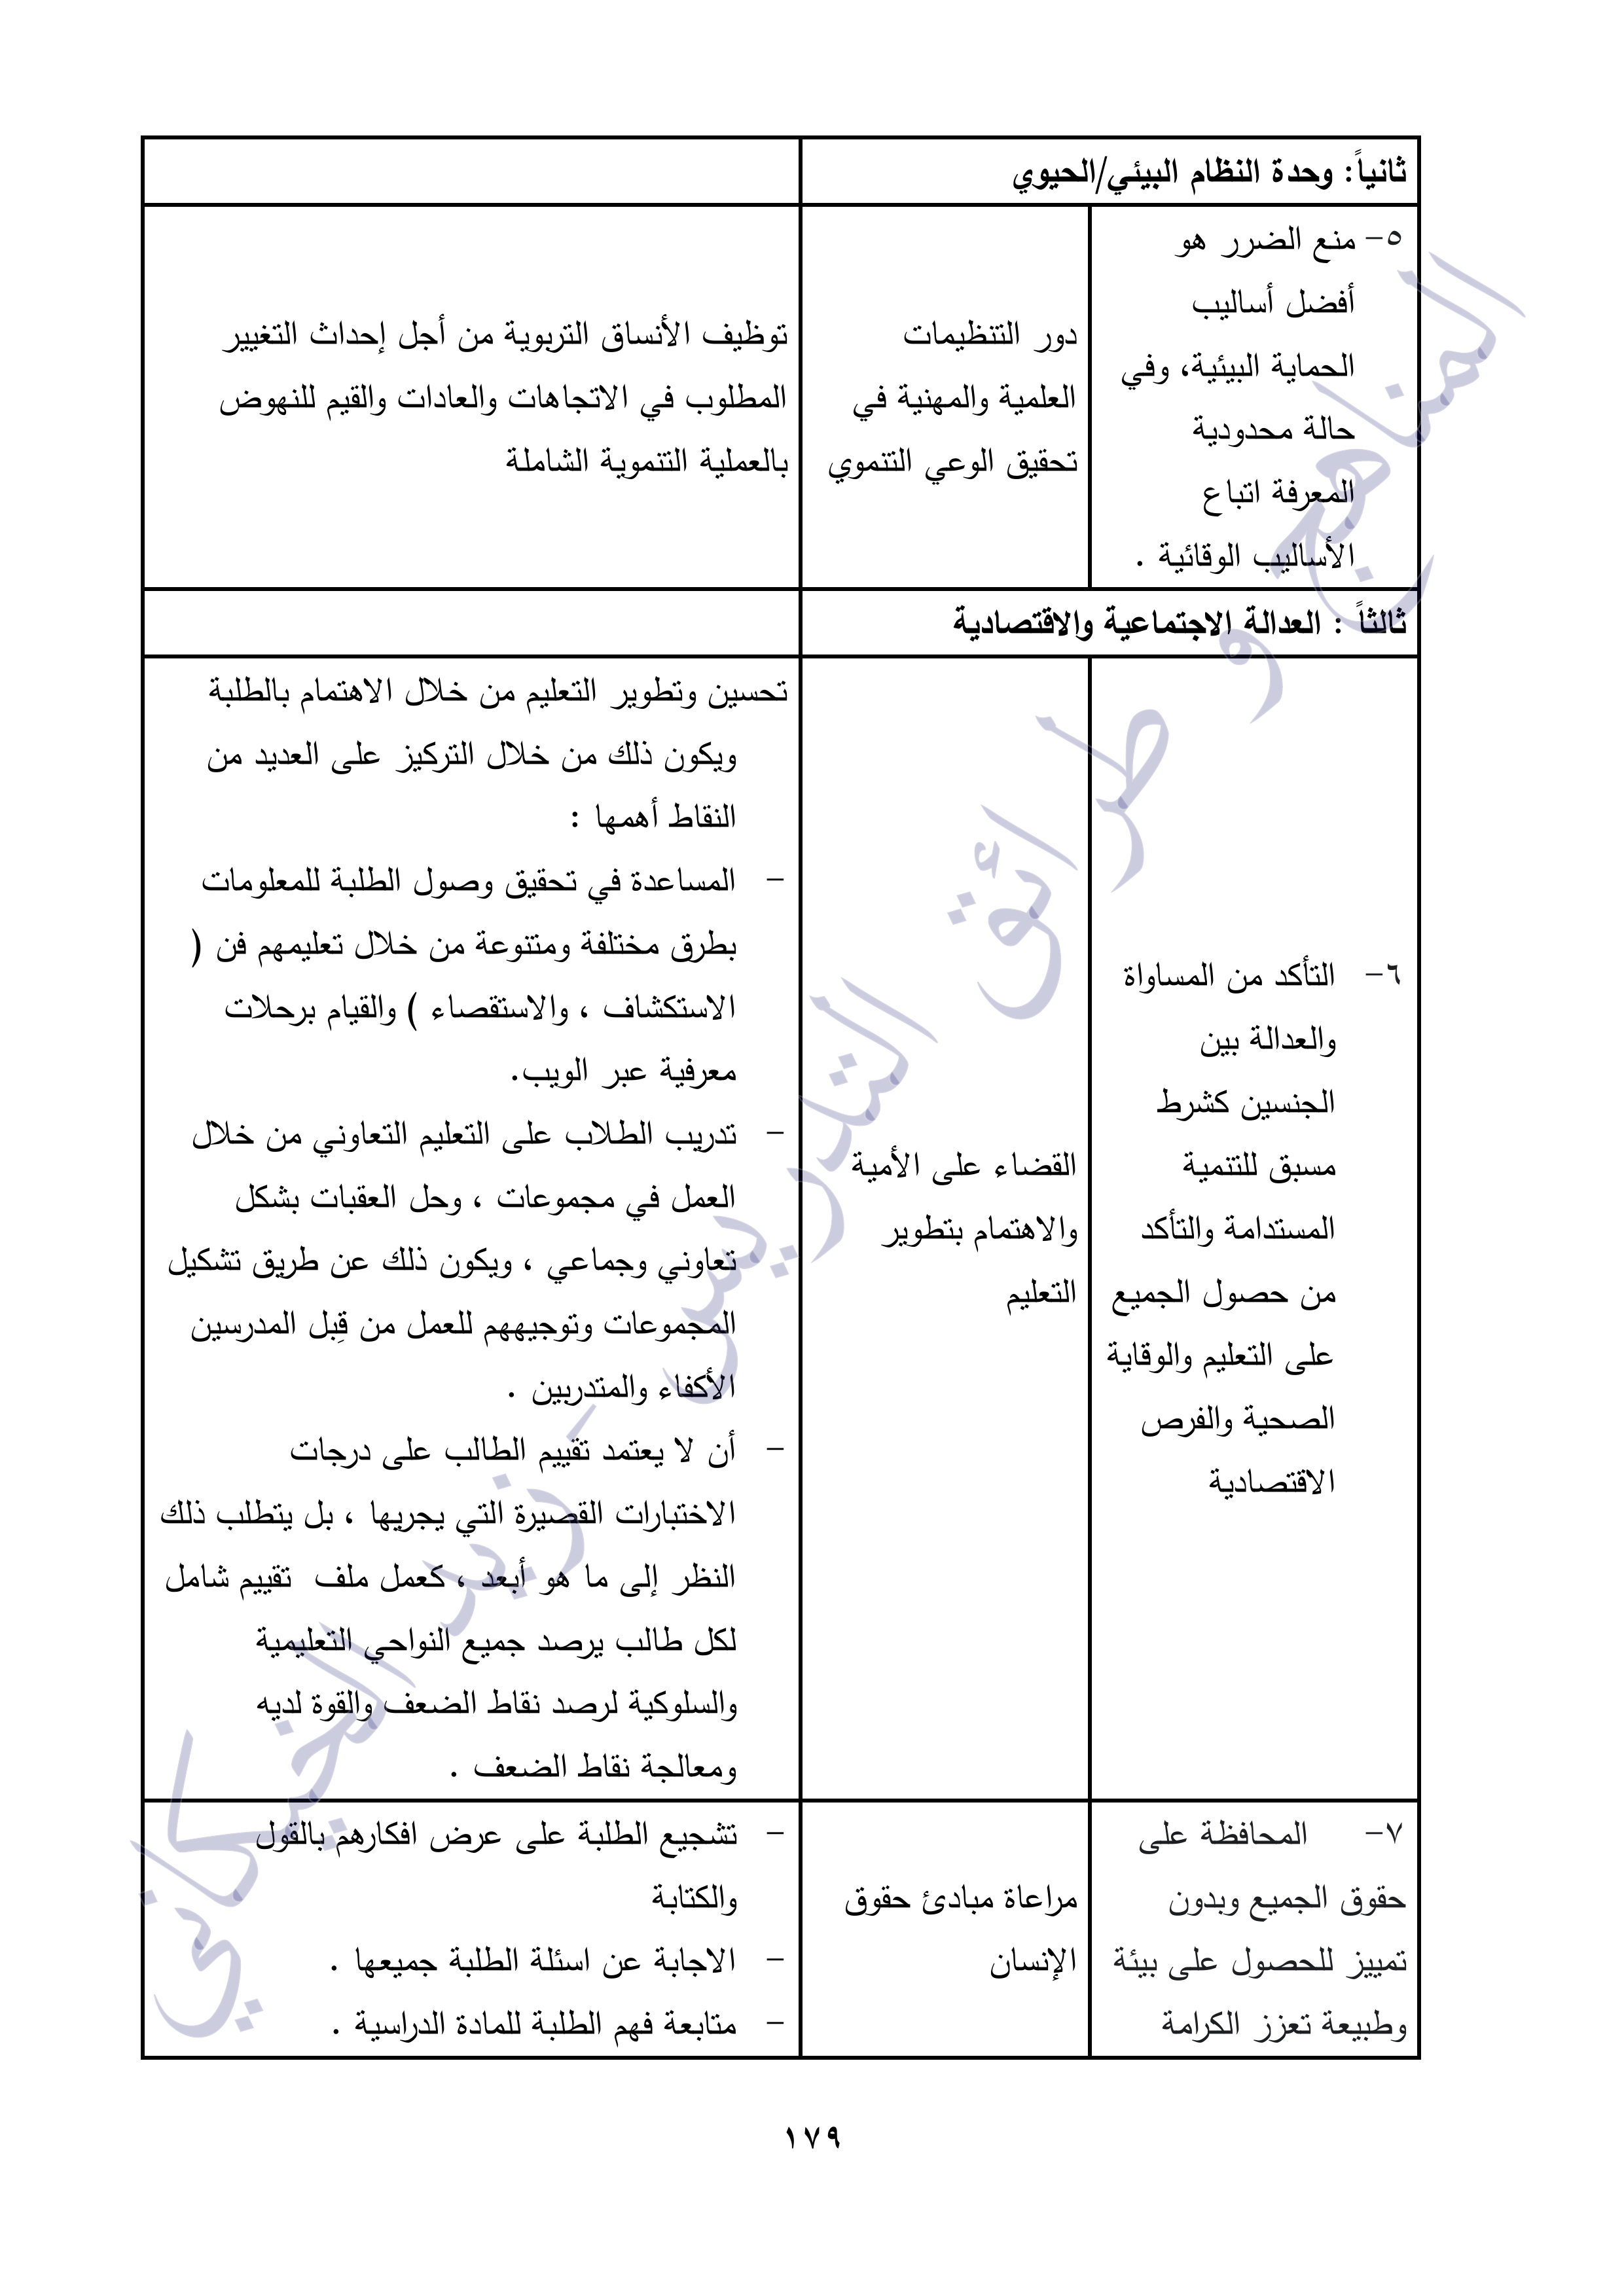 ثانياً: وحدة النظام البيئي/الحيوي
٥- منع الضرر هو
أفضل أساليب
الحماية البيئية، وفي
حالة محدودية
المعرفة اتباع
الأساليب الوقائية .
دور التنظيمات
العلمية والمهنية في
تحقيق الوعي التنموي
توظيف الأنساق التربوية من أجل إحداث التغيير
المطلوب في الاتجاهات والعادات والقيم للنهوض
بالعملية التنموية الشاملة
ثالثاً : العدالة الاجتماعية والاقتصادية
٦- التأكد من المساواة
والعدالة بين
الجنسين كشرط
مسبق للتنمية
المستدامة والتأكد
من حصول الجميع
على التعليم والوقاية
الصحية والفرص
الاقتصادية
القضاء على الأمية
والاهتمام بتطوير
التعليم
تحسين وتطوير التعليم من خلال الاهتمام بالطلبة
ويكون ذلك من خلال التركيز على العديد من
النقاط أهمها :
- المساعدة في تحقيق وصول الطلبة للمعلومات
بطرق مختلفة ومتنوعة من خلال تعليمهم فن (
الاستكشاف ، والاستقصاء ) والقيام برحلات
معرفية عبر الويب.
- تدريب الطلاب على التعليم التعاوني من خلال
العمل في مجموعات ، وحل العقبات بشكل
تعاوني وجماعي ، ويكون ذلك عن طريق تشكيل
المجموعات وتوجيههم للعمل من قِبل المدرسين
الأكفاء والمتدربين .
- أن لا يعتمد تقييم الطالب على درجات
الاختبارات القصيرة التي يجريها ، بل يتطلب ذلك
النظر إلى ما هو أبعد ، كعمل ملف تقييم شامل
لكل طالب يرصد جميع النواحي التعليمية
والسلوكية لرصد نقاط الضعف والقوة لديه
ومعالجة نقاط الضعف .
٧- المحافظة على
حقوق الجميع وبدون
تمييز للحصول على بيئة
وطبيعة تعزز الكرامة
مراعاة مبادئ حقوق
الإنسان
- تشجيع الطلبة على عرض افكارهم بالقول
والكتابة
- الاجابة عن اسئلة الطلبة جميعها .
- متابعة فهم الطلبة للمادة الدراسية .
المناهج و طرائق التدريس - زيد الخيكاني
١٧٩